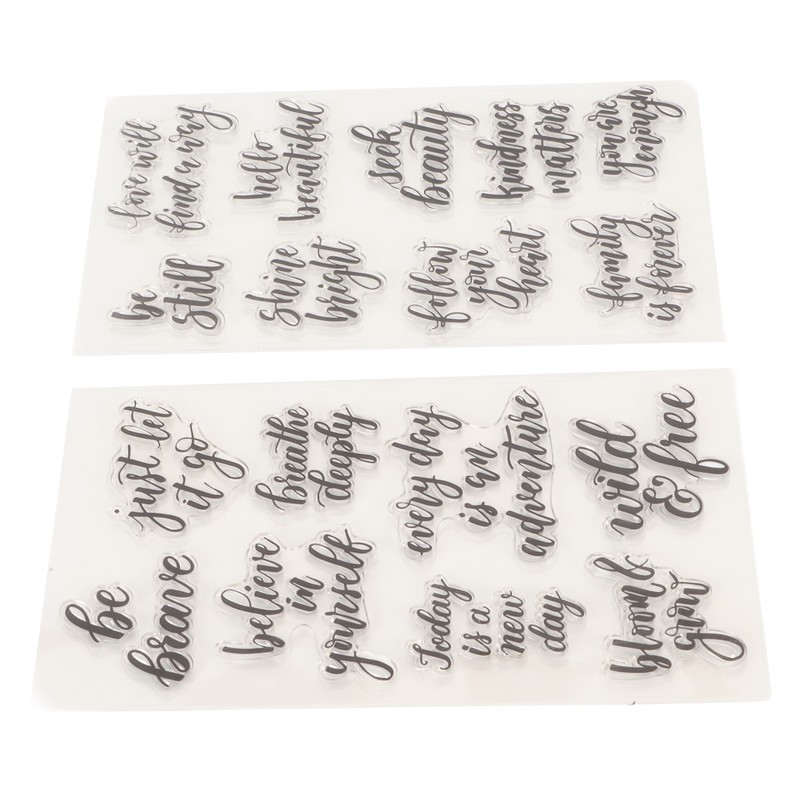 love will
find a way
hello
beautiful
seek
beauty
kindness
matters
you are
enough
be
still
shine
bright
follow
your
heart
family
is forever
just let
it go
breathe
deeply
every day
is an
adventure
wild
& free
be
brave
believe
in
yourself
Today
is a
new
day
bloom &
grow